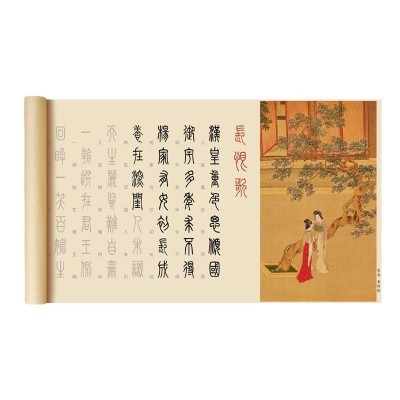 長恨歌
漢皇重色思傾國
御宇多年求不得
楊家有女初長成
養在深閨人未識
天生麗質難自棄
一朝選在君王側
回眸一笑百媚生